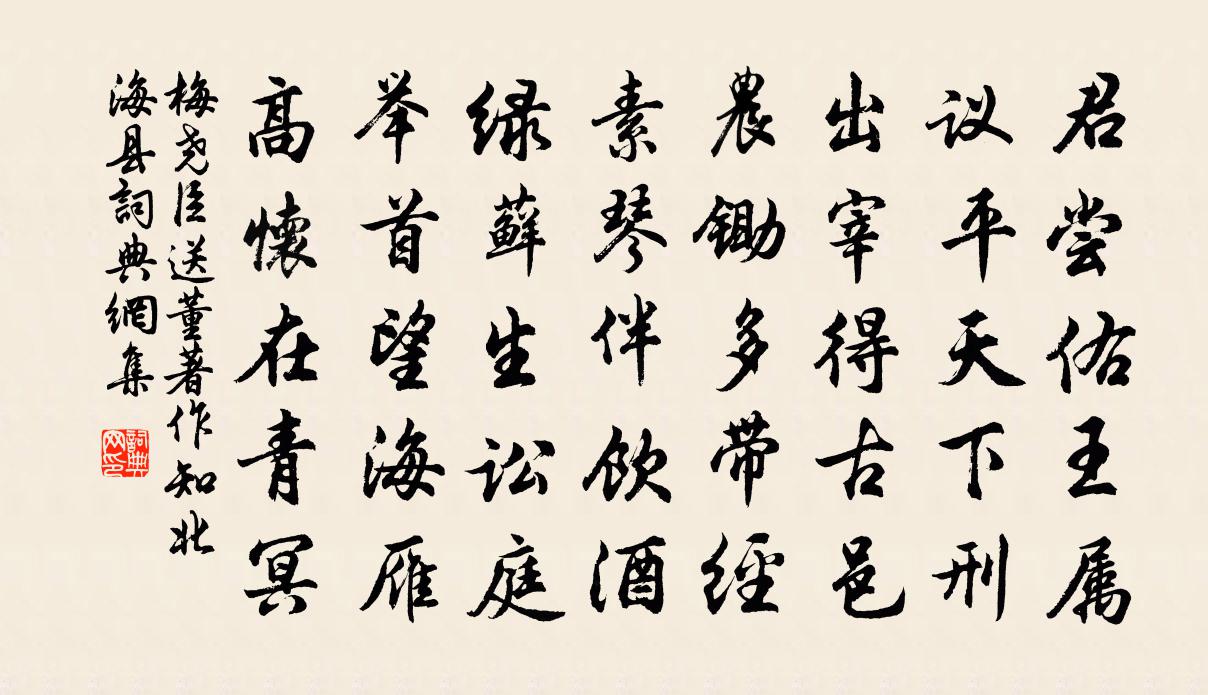 君尝佑王属
议平天下刑
出宰得古邑
農锄多带经
素琴伴饮酒
绿藓生讼庭
举首望海雁
高懷在青冥
梅尧臣送董著作知北
海县詞典網集
詞典
网印